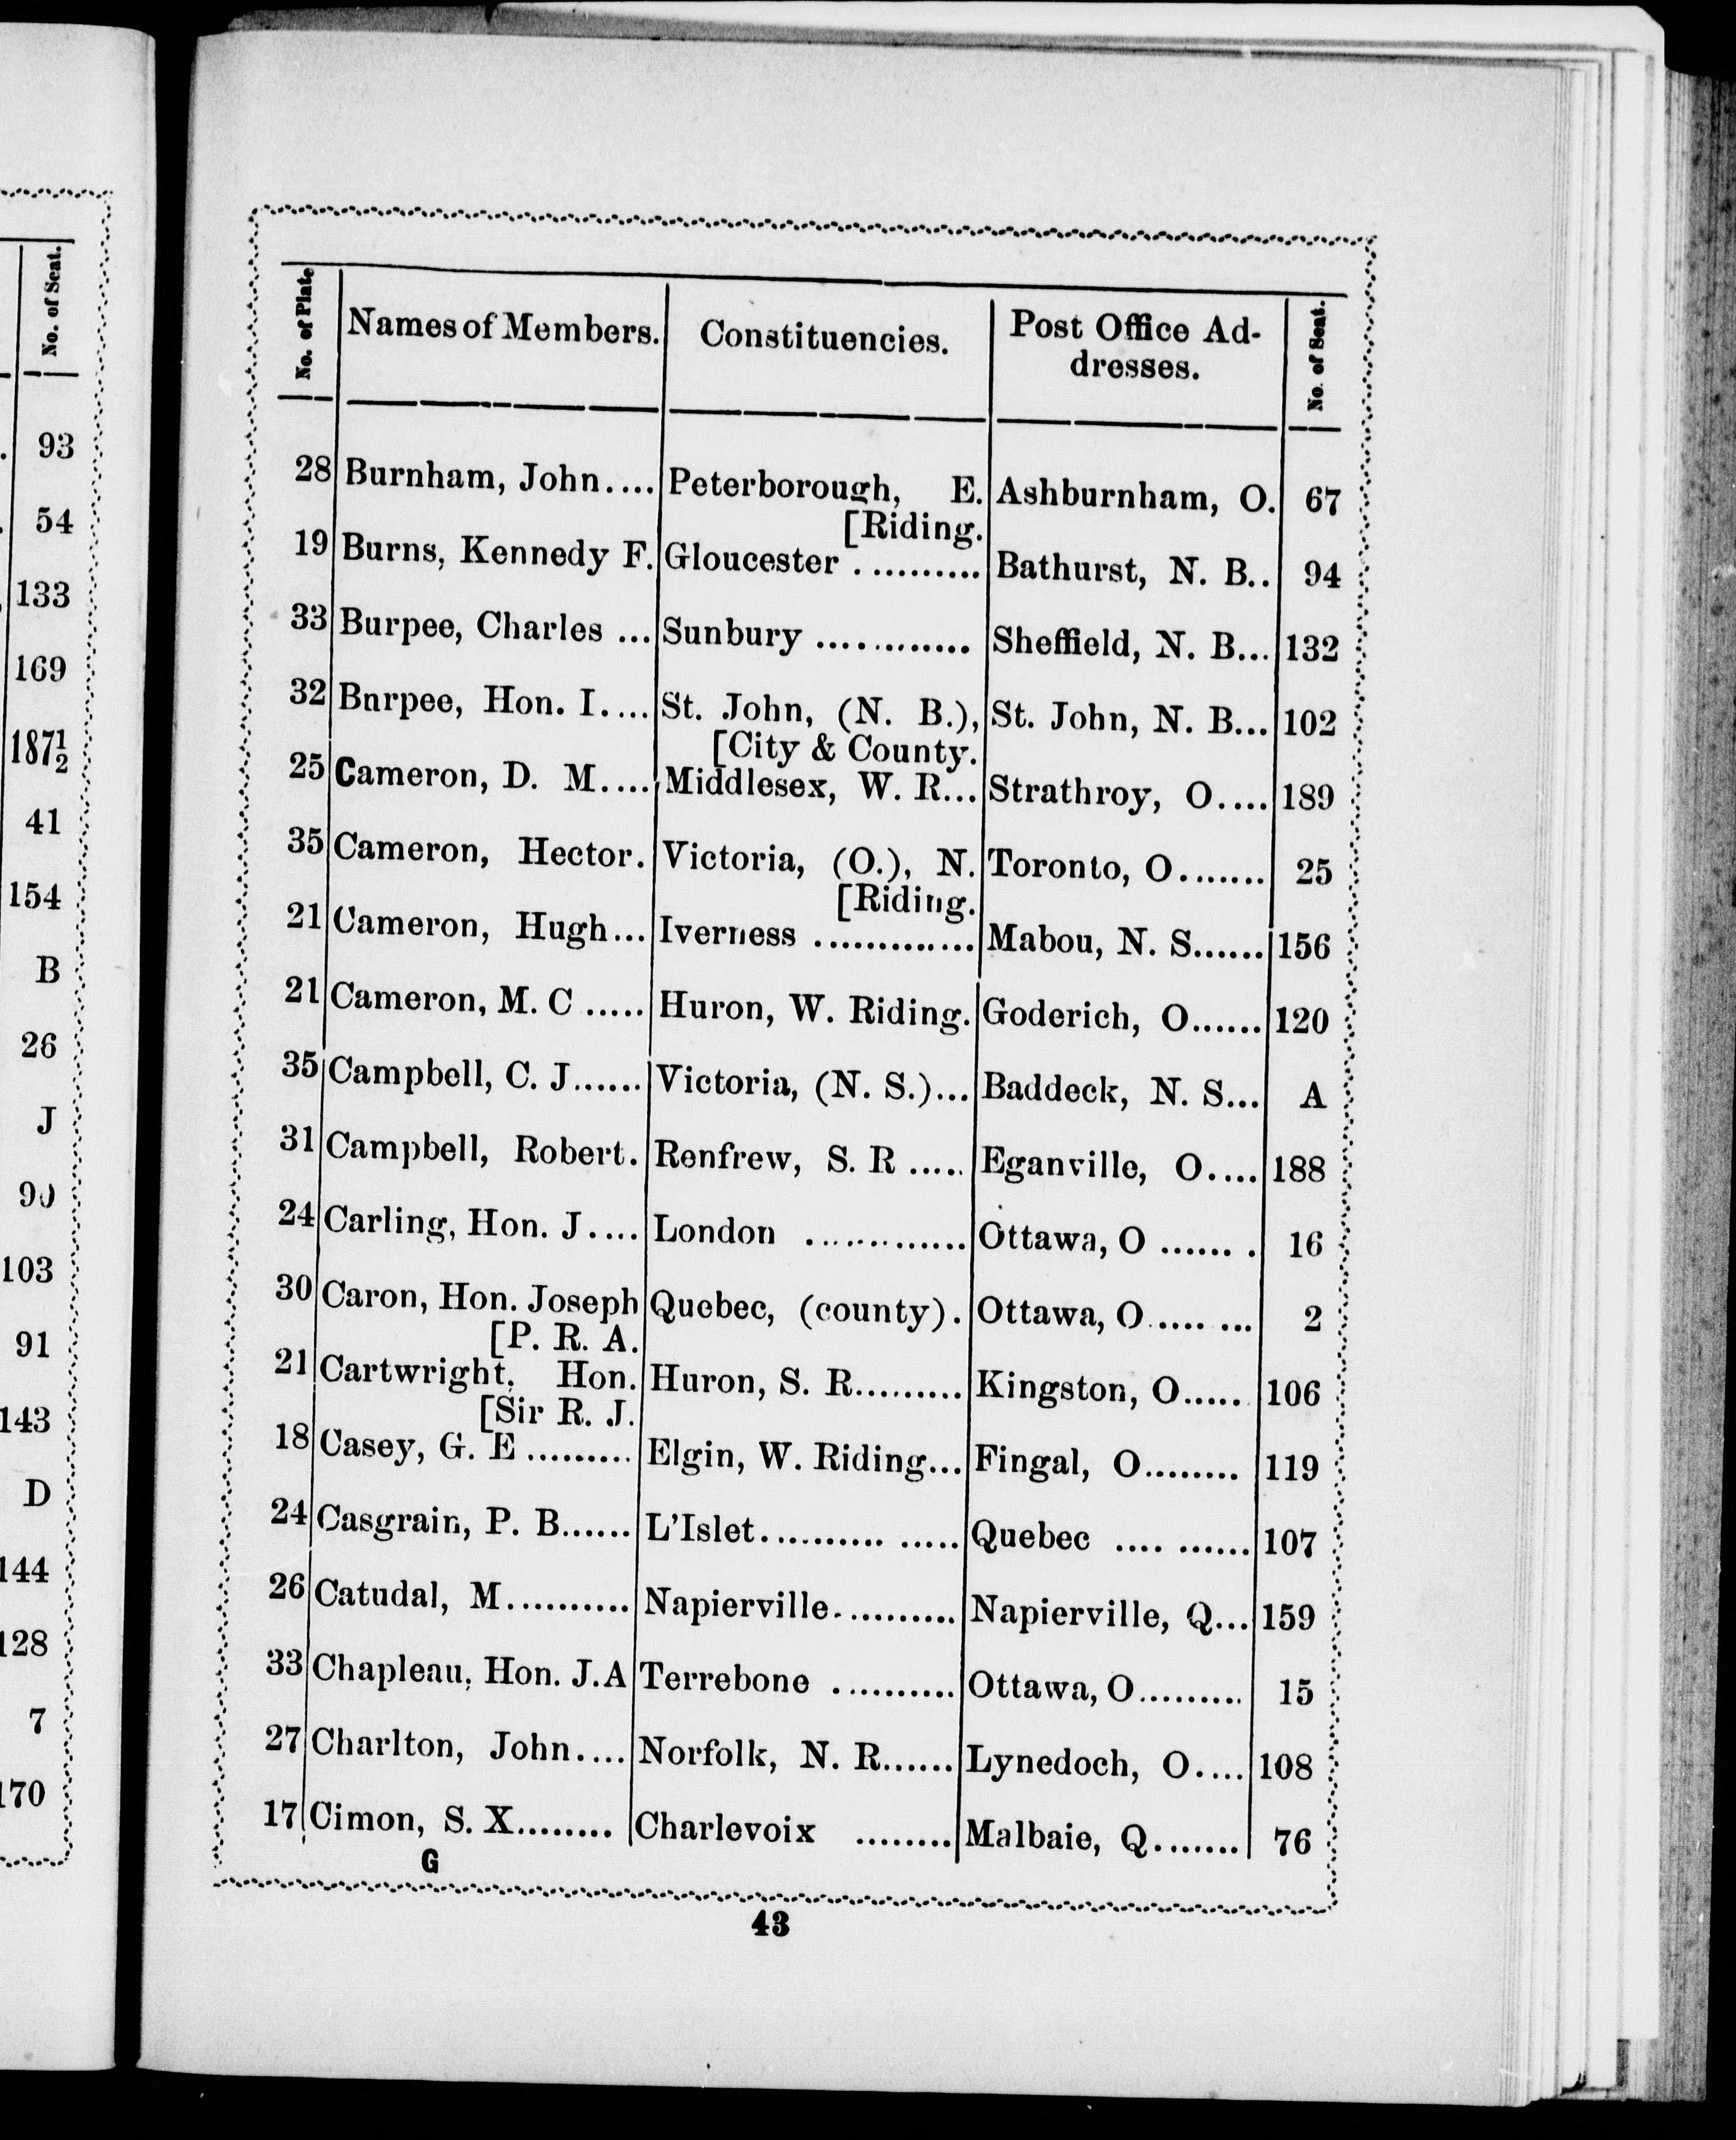 No. of Seat.
93
54
133
169
187½
41
154
B
26
J
90
103
91
143
D
144
128
7
170
No. of Plate
Names of Members.
Constituencies.
Post Office Ad-
dresses.
No. of Seat.
28 Burnham, John.... Peterborough, E. Ashburnham, O. 67
[Riding.
19 Burns, Kennedy F. Gloucester ........... Bathurst, N. B.. 94
33 Burpee, Charles ... Sunbury ............ Sheffield, N. B... 132
32 Bnrpee, Hon. I.... St. John, (N. B.), St. John, N. B... 102
[City & County.
25 Cameron, D. M.... Middlesex, W. R... Strathroy, O.... 189
35 Cameron, Hector. Victoria, (O.), N. Toronto, O....... 25
[Riding.
21 Cameron, Hugh... Iverness ............. Mabou, N. S...... 156
21 Cameron, M. C ..... Huron, W. Riding. Goderich, O...... 120
35 Campbell, C. J...... Victoria, (N. S.)... Baddeck, N. S... A
31 Campbell, Robert. Renfrew, S. R ..... Eganville, O.... 188
24 Carling, Hon. J.... London ............. Ottawa, O ...... . 16
30 Caron, Hon. Joseph Quebec, (county). Ottawa, O..... ... 2
[P. R. A.
21 Cartwright, Hon. Huron, S. R......... Kingston, O..... 106
[Sir R. J.
18 Casey, G. E ......... Elgin, W. Riding... Fingal, O........ 119
24 Casgrain, P. B...... L'Islet........... ..... Quebec .... ...... 107
26 Catudal, M.......... Napierville.......... Napierville, Q... 159
33 Chapleau, Hon. J.A Terrebone .......... Ottawa, O......... 15
27 Charlton, John.... Norfolk, N. R...... Lynedoch, O.... 108
17 Cimon, S. X........ Charlevoix ........ Malbaie, Q....... 76
G
43